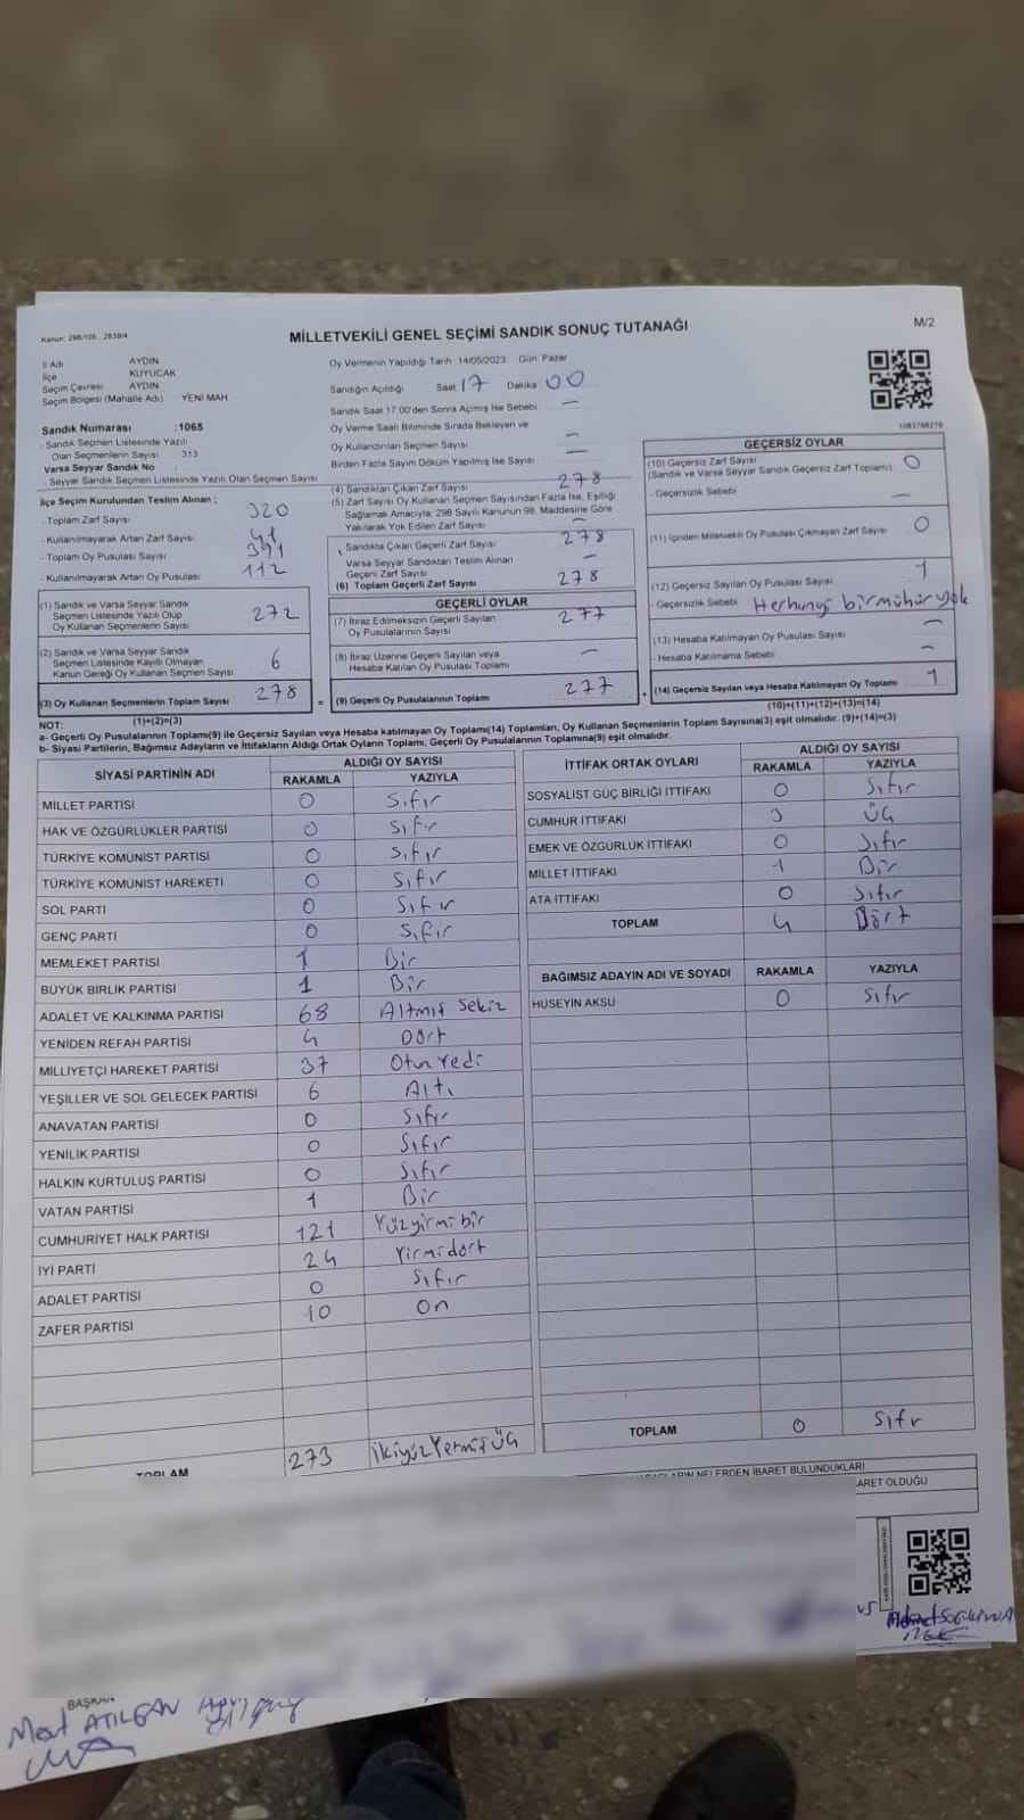 Kanun: 298/105, 2839/4
MİLLETVEKİLİ GENEL SEÇİMİ SANDIK SONUÇ TUTANAĞI
M/2
İl Adı AYDIN
İlçe KUYUCAK
Seçim Çevresi AYDIN
Seçim Bölgesi (Mahalle Adı) YENİ MAH
Sandık Numarası :1065
- Sandık Seçmen Listesinde Yazılı
Olan Seçmenlerin Sayısı 313
Varsa Seyyar Sandık No :
- Seyyar Sandık Seçmen Listesinde Yazılı Olan Seçmen Sayısı
Oy Vermenin Yapıldığı Tarih :14/05/2023 Gün: Pazar
Sandığın Açıldığı Saat 17 Dakika 00
Sandık Saat 17.00'den Sonra Açılmış İse Sebebi —
Oy Verme Saati Bitiminde Sırada Bekleyen ve
Oy Kullandırılan Seçmen Sayısı —
Birden Fazla Sayım Döküm Yapılmış İse Sayısı —
İlçe Seçim Kurulundan Teslim Alınan ;
- Toplam Zarf Sayısı 320
- Kullanılmayarak Artan Zarf Sayısı
- Toplam Oy Pusulası Sayısı
- Kullanılmayarak Artan Oy Pusulası 112
(1) Sandık ve Varsa Seyyar Sandık
Seçmen Listesinde Yazılı Olup
Oy Kullanan Seçmenlerin Sayısı 272
(2) Sandık ve Varsa Seyyar Sandık
Seçmen Listesinde Kayıtlı Olmayan
Kanun Gereği Oy Kullanan Seçmen Sayısı 6
(3) Oy Kullanan Seçmenlerin Toplam Sayısı 278
(1)+(2)=(3)
(4) Sandıktan Çıkan Zarf Sayısı 278
(5) Zarf Sayısı Oy Kullanan Seçmen Sayısından Fazla İse, Eşitliği
Sağlamak Amacıyla; 298 Sayılı Kanunun 98. Maddesine Göre
Yakılarak Yok Edilen Zarf Sayısı —
Sandıkta Çıkan Geçerli Zarf Sayısı 278
Varsa Seyyar Sandıktan Teslim Alınan
Geçerli Zarf Sayısı —
(6) Toplam Geçerli Zarf Sayısı 278
GEÇERLİ OYLAR
(7) İtiraz Edilmeksizin Geçerli Sayılan
Oy Pusulalarının Sayısı 277
(8) İtiraz Üzerine Geçerli Sayılan veya
Hesaba Katılan Oy Pusulası Toplamı —
= (9) Geçerli Oy Pusulalarının Toplamı 277
GEÇERSİZ OYLAR
(10) Geçersiz Zarf Sayısı 0
(Sandık ve Varsa Seyyar Sandık Geçersiz Zarf Toplamı)
- Geçersizlik Sebebi —
(11) İçinden Milletvekili Oy Pusulası Çıkmayan Zarf Sayısı 0
(12) Geçersiz Sayılan Oy Pusulası Sayısı 1
- Geçersizlik Sebebi Herhangi bir mühür yok
(13) Hesaba Katılmayan Oy Pusulası Sayısı —
- Hesaba Katılmama Sebebi —
+ (14) Geçersiz Sayılan veya Hesaba Katılmayan Oy Toplamı 1
(10)+(11)+(12)+(13)=(14)
NOT:
a- Geçerli Oy Pusulası Toplamı(9) ile Geçersiz Sayılan veya Hesaba katılmayan Oy Toplamı(14) Toplamları, Oy Kullanan Seçmenlerin Toplam Sayısına(3) eşit olmalıdır. (9)+(14)=(3)
b- Siyasi Partilerin, Bağımsız Adayların ve İttifakların Aldığı Ortak Oyların Toplamı, Geçerli Oy Pusulalarının Toplamına(9) eşit olmalıdır.
SİYASİ PARTİNİN ADI ALDIĞI OY SAYISI
RAKAMLA YAZIYLA
MİLLET PARTİSİ 0 Sıfır
HAK VE ÖZGÜRLÜKLER PARTİSİ 0 Sıfır
TÜRKİYE KOMÜNİST PARTİSİ 0 Sıfır
TÜRKİYE KOMÜNİST HAREKETİ 0 Sıfır
SOL PARTİ 0 Sıfır
GENÇ PARTİ 0 Sıfır
MEMLEKET PARTİSİ 1 Bir
BÜYÜK BİRLİK PARTİSİ 1 Bir
ADALET VE KALKINMA PARTİSİ 68 Altmış Sekiz
YENİDEN REFAH PARTİSİ 4 Dört
MİLLİYETÇİ HAREKET PARTİSİ 37 Otuz Yedi
YEŞİLLER VE SOL GELECEK PARTİSİ 6 Altı
ANAVATAN PARTİSİ 0 Sıfır
YENİLİK PARTİSİ 0 Sıfır
HALKIN KURTULUŞ PARTİSİ 0 Sıfır
VATAN PARTİSİ 1 Bir
CUMHURİYET HALK PARTİSİ 121 Yüzyirmi bir
İYİ PARTİ 24 Yirmidört
ADALET PARTİSİ 0 Sıfır
ZAFER PARTİSİ 10 On
TOPLAM 273 İkiyüz Yetmiş Üç
İTTİFAK ORTAK OYLARI ALDIĞI OY SAYISI
RAKAMLA YAZIYLA
SOSYALİST GÜÇ BİRLİĞİ İTTİFAKI 0 Sıfır
CUMHUR İTTİFAKI 3 Üç
EMEK VE ÖZGÜRLÜK İTTİFAKI 0 Sıfır
MİLLET İTTİFAKI 1 Bir
ATA İTTİFAKI 0 Sıfır
TOPLAM 4 Dört
BAĞIMSIZ ADAYIN ADI VE SOYADI RAKAMLA YAZIYLA
HÜSEYİN AKSU 0 Sıfır
TOPLAM 0 Sıfır
NELERDEN İBARET BULUNDUKLARI
ARET OLDUĞU
BAŞKAN
Mert ATILGAN